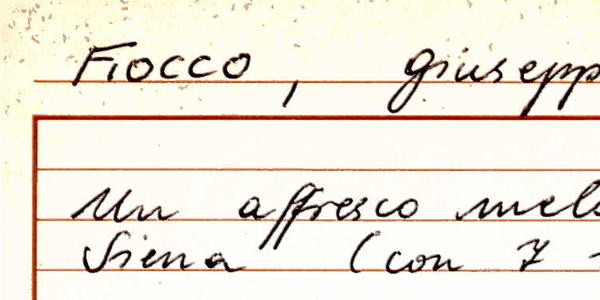 Fiocco, Giusepp
Un affresco melo
Siena (con 7